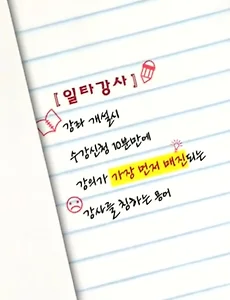 『일타강사』
강좌 개설시
수강신청 10분만에
강의가 가장 먼저 매진되는
강사를 칭하는 용어